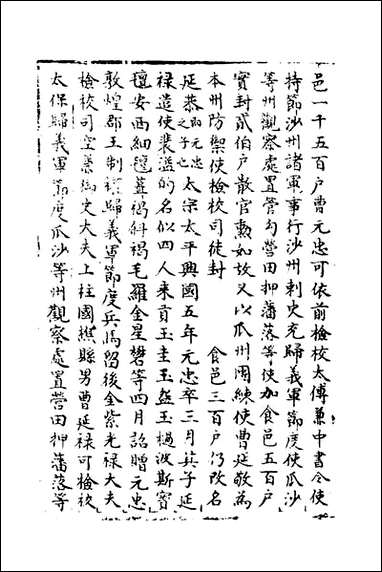 邑一千五百户曹元忠可依前檢校太傅兼中書令使
持節沙州諸軍事行沙州刺史充歸義軍節度使瓜沙
等州觀察處置管勾營田押蕃落等使加食邑五百户
實封貳伯户散官勲如故又以瓜州團練使曹延敬為
本州防禦使檢校司徒封　　　食邑三百户仍改名
延恭元忠之子也太宗太平興國五年元忠卒三月其子延
禄遣使裴溢的名似四人来貢玉圭玉盌玉檛波斯寳
氊安西細氊茸褐斜褐毛羅金星礬等四月詔贈元忠
敦煌郡王制授歸義軍節度兵馬留後金紫光禄大夫
檢校司空兼御史大夫上柱國譙縣男曹延禄可檢校
太保歸義軍節度瓜沙等州觀察處置營田押蕃落等